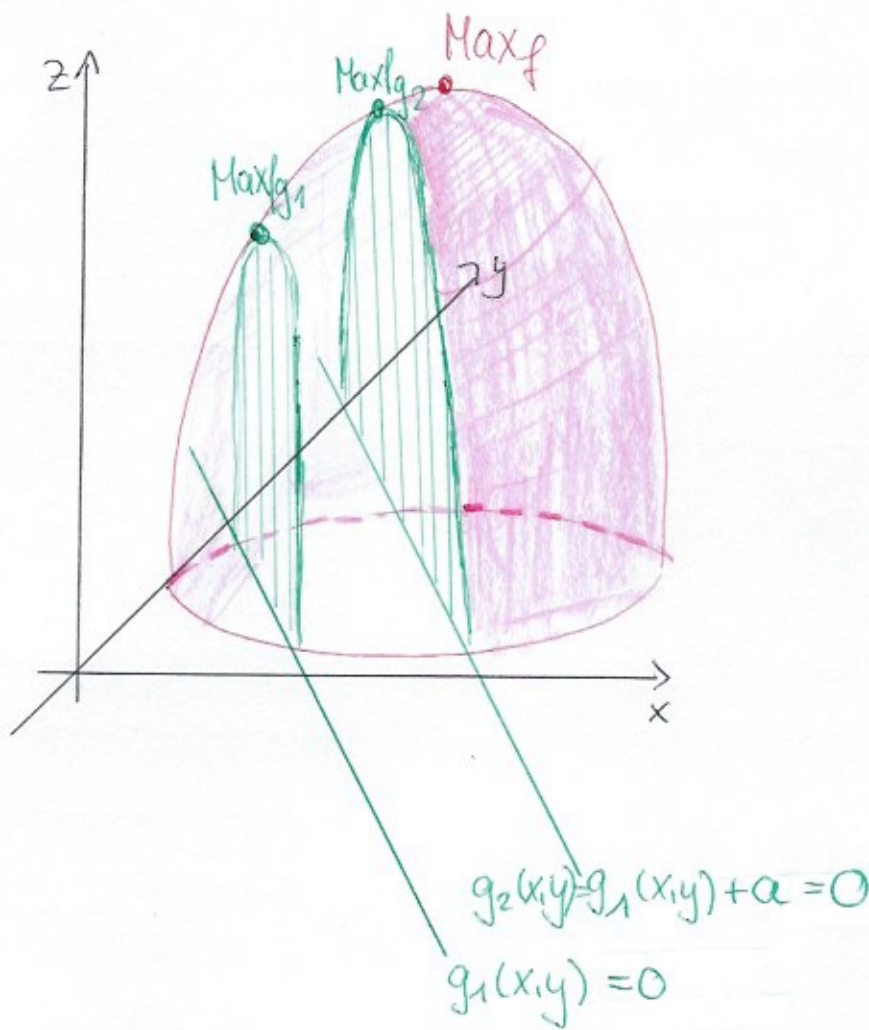 Max_f
Max|g₂
z
Max|g₁
y
x
g₂(x,y)=g₁(x,y)+a=0
g₁(x,y)=0